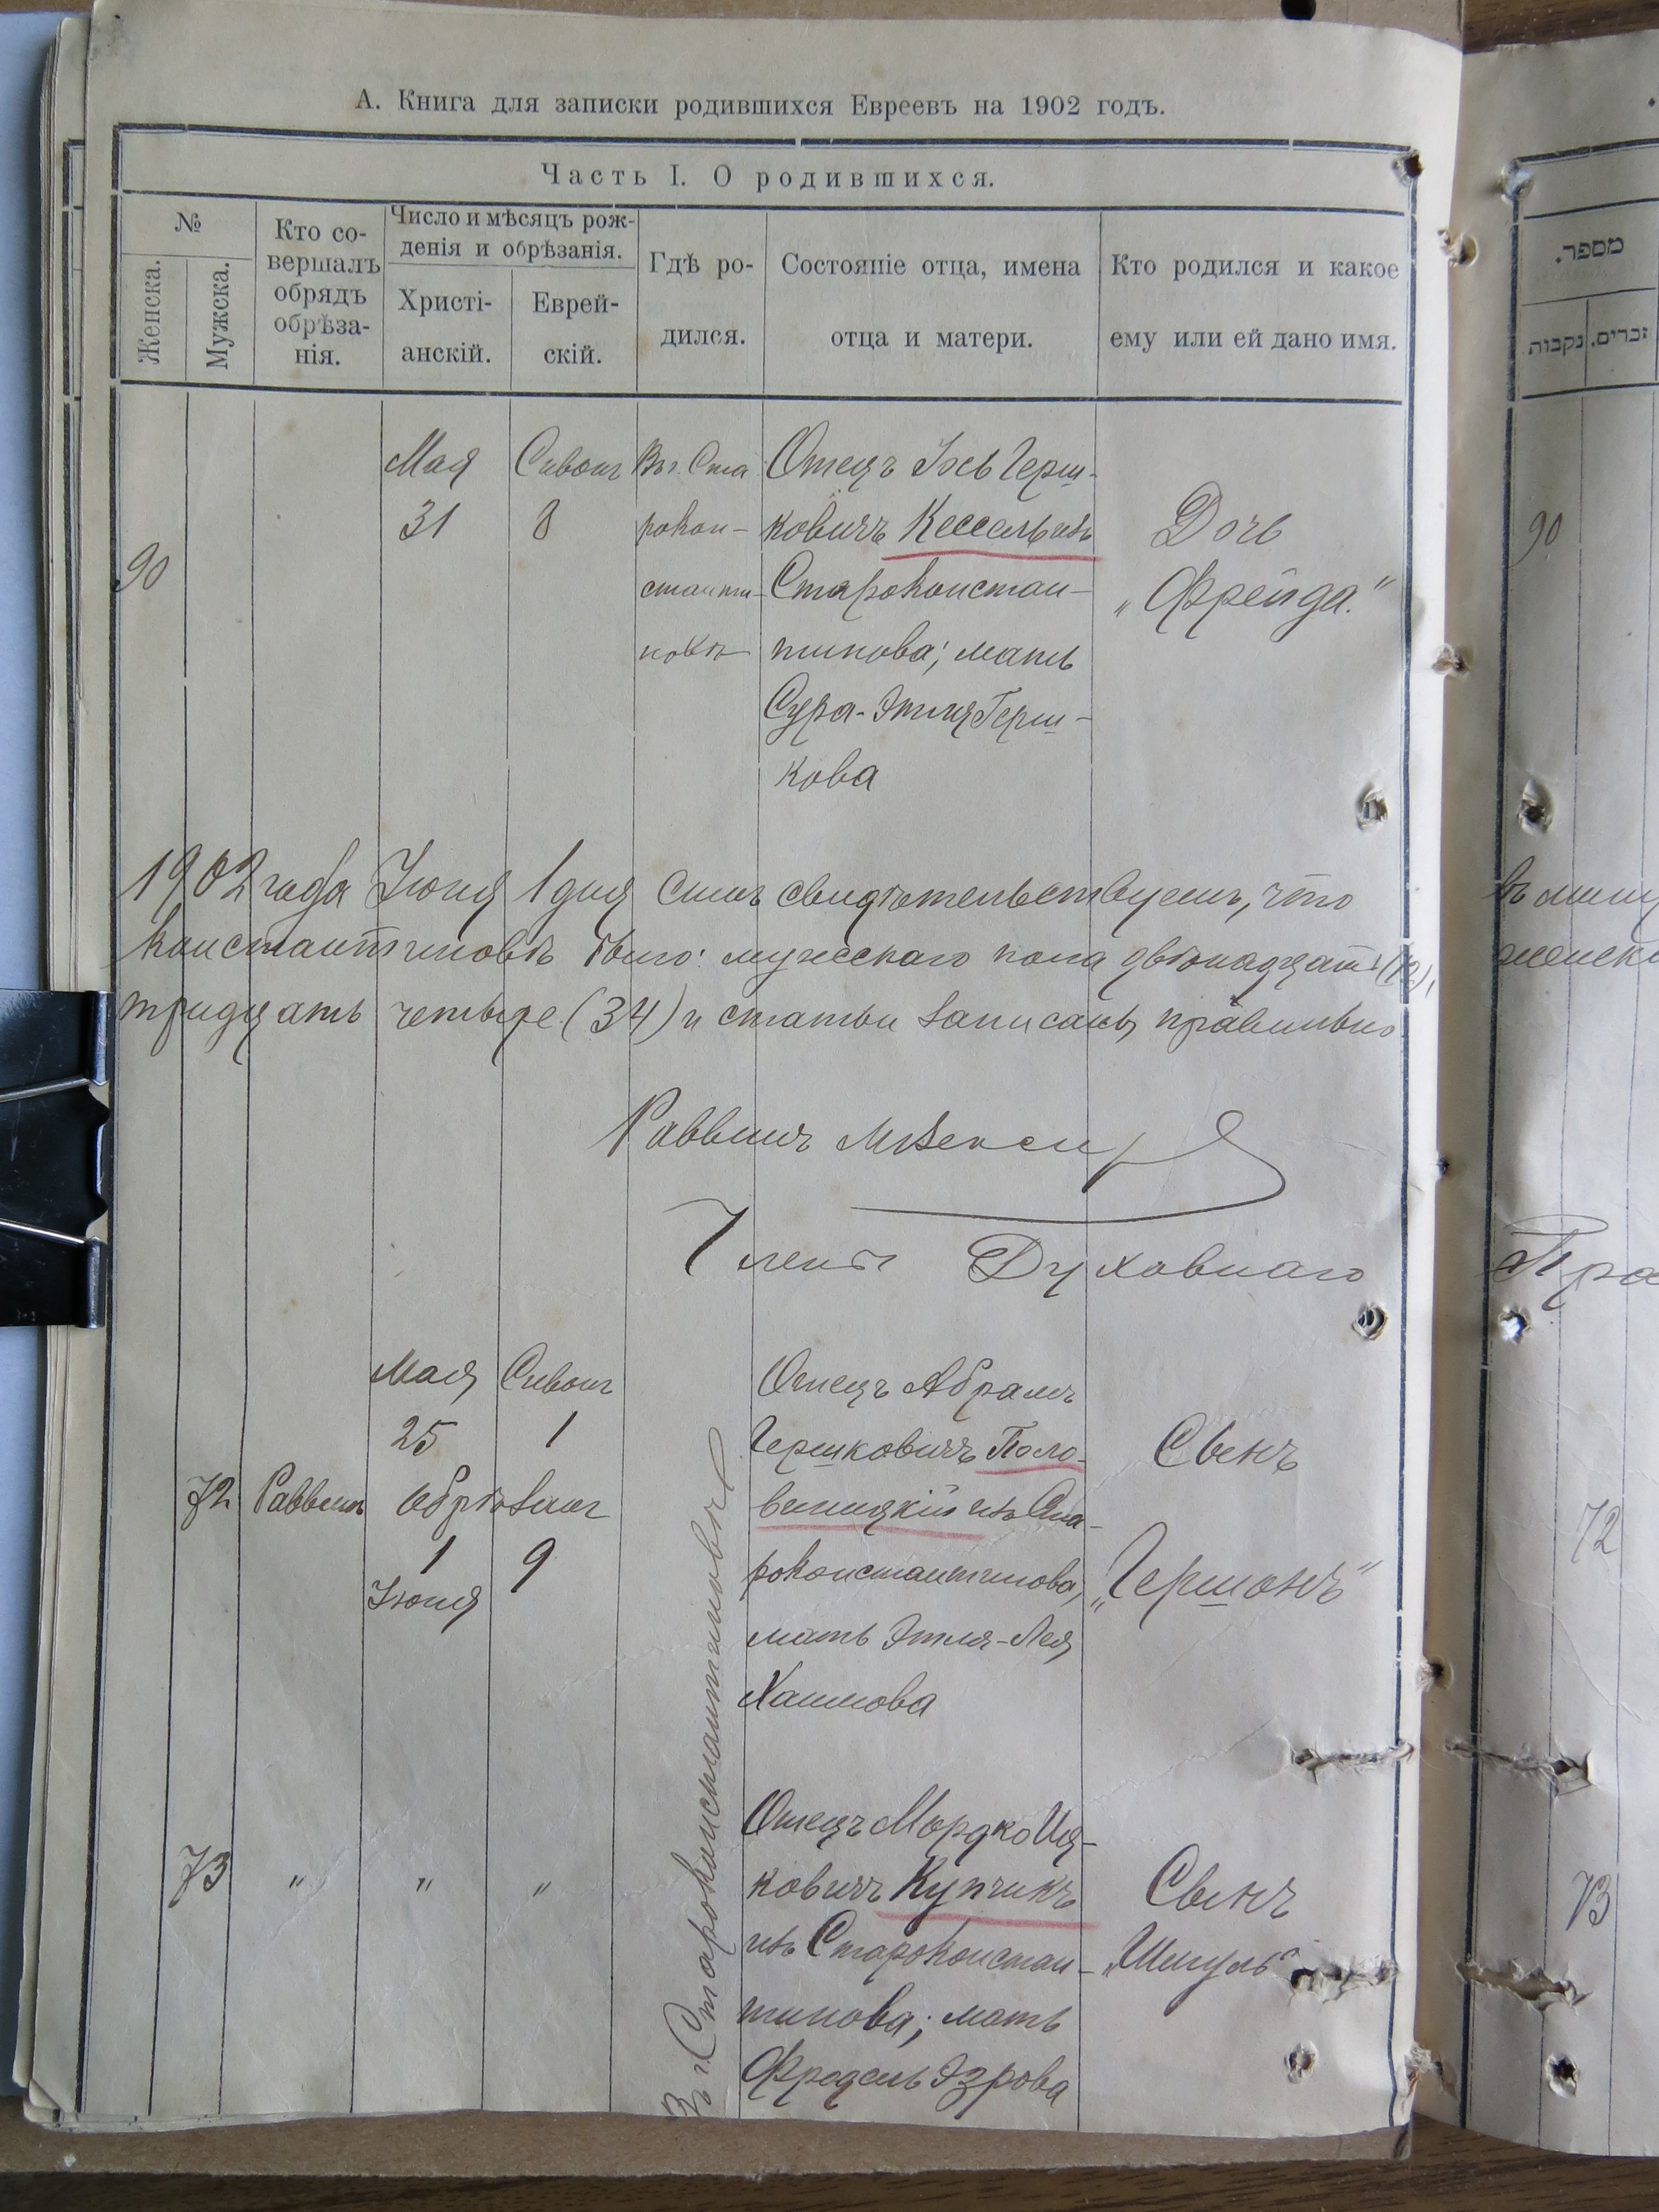 А. Книга для записки родившихся Евреевъ на 1902 годъ.
Часть I. О родившихся.
№
Женска.
Мужска.
Кто со-
вершалъ
обрядъ
обрѣза-
нія.
Число и мѣсяцъ рож-
денія и обрѣзанія.
Христі-
анскій.
Еврей-
скій.
Гдѣ ро-
дился.
Состояніе отца, имена
отца и матери.
Кто родился и какое
ему или ей дано имя.
90
Мая
31
Сиванъ
8
Въ г. Ста
рокон-
станти-
новѣ
Отецъ Іось Герш-
ковичъ Кессель изъ
Староконстан-
тинова; мать
Сура-Этля Герш-
кова
Дочь
„Фрейда."
1902 года Іюня 1 дня симъ свидѣтельствуемъ, что
константиновѣ было: мужескаго пола двѣнадцать (12),
тридцать четыре (34) и статьи записаны правильно
Раввинъ
Члены Духовнаго
72
Раввинъ
Мая
25
Сиванъ
1
обрѣзанъ
1
Іюня
9
Въ г. Староконстантиновѣ
Отецъ Абрамъ
Гершковичъ Поло-
виницкій изъ Ста-
роконстантинова,
мать Этля-Лея
Хаимова
Сынъ
„Гершонъ"
73
" " "
Отецъ Мордко Иц-
ковичъ Купчикъ
изъ Староконстан-
тинова; мать
Фредель Эзрова
Сынъ
„Шмуль"
מספר.
זכרים.
נקבות
90
Пра
72
73